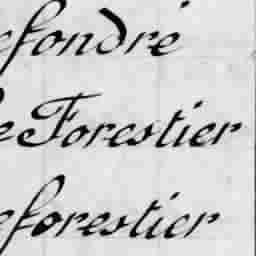 efondré
e Forestier
eforestier